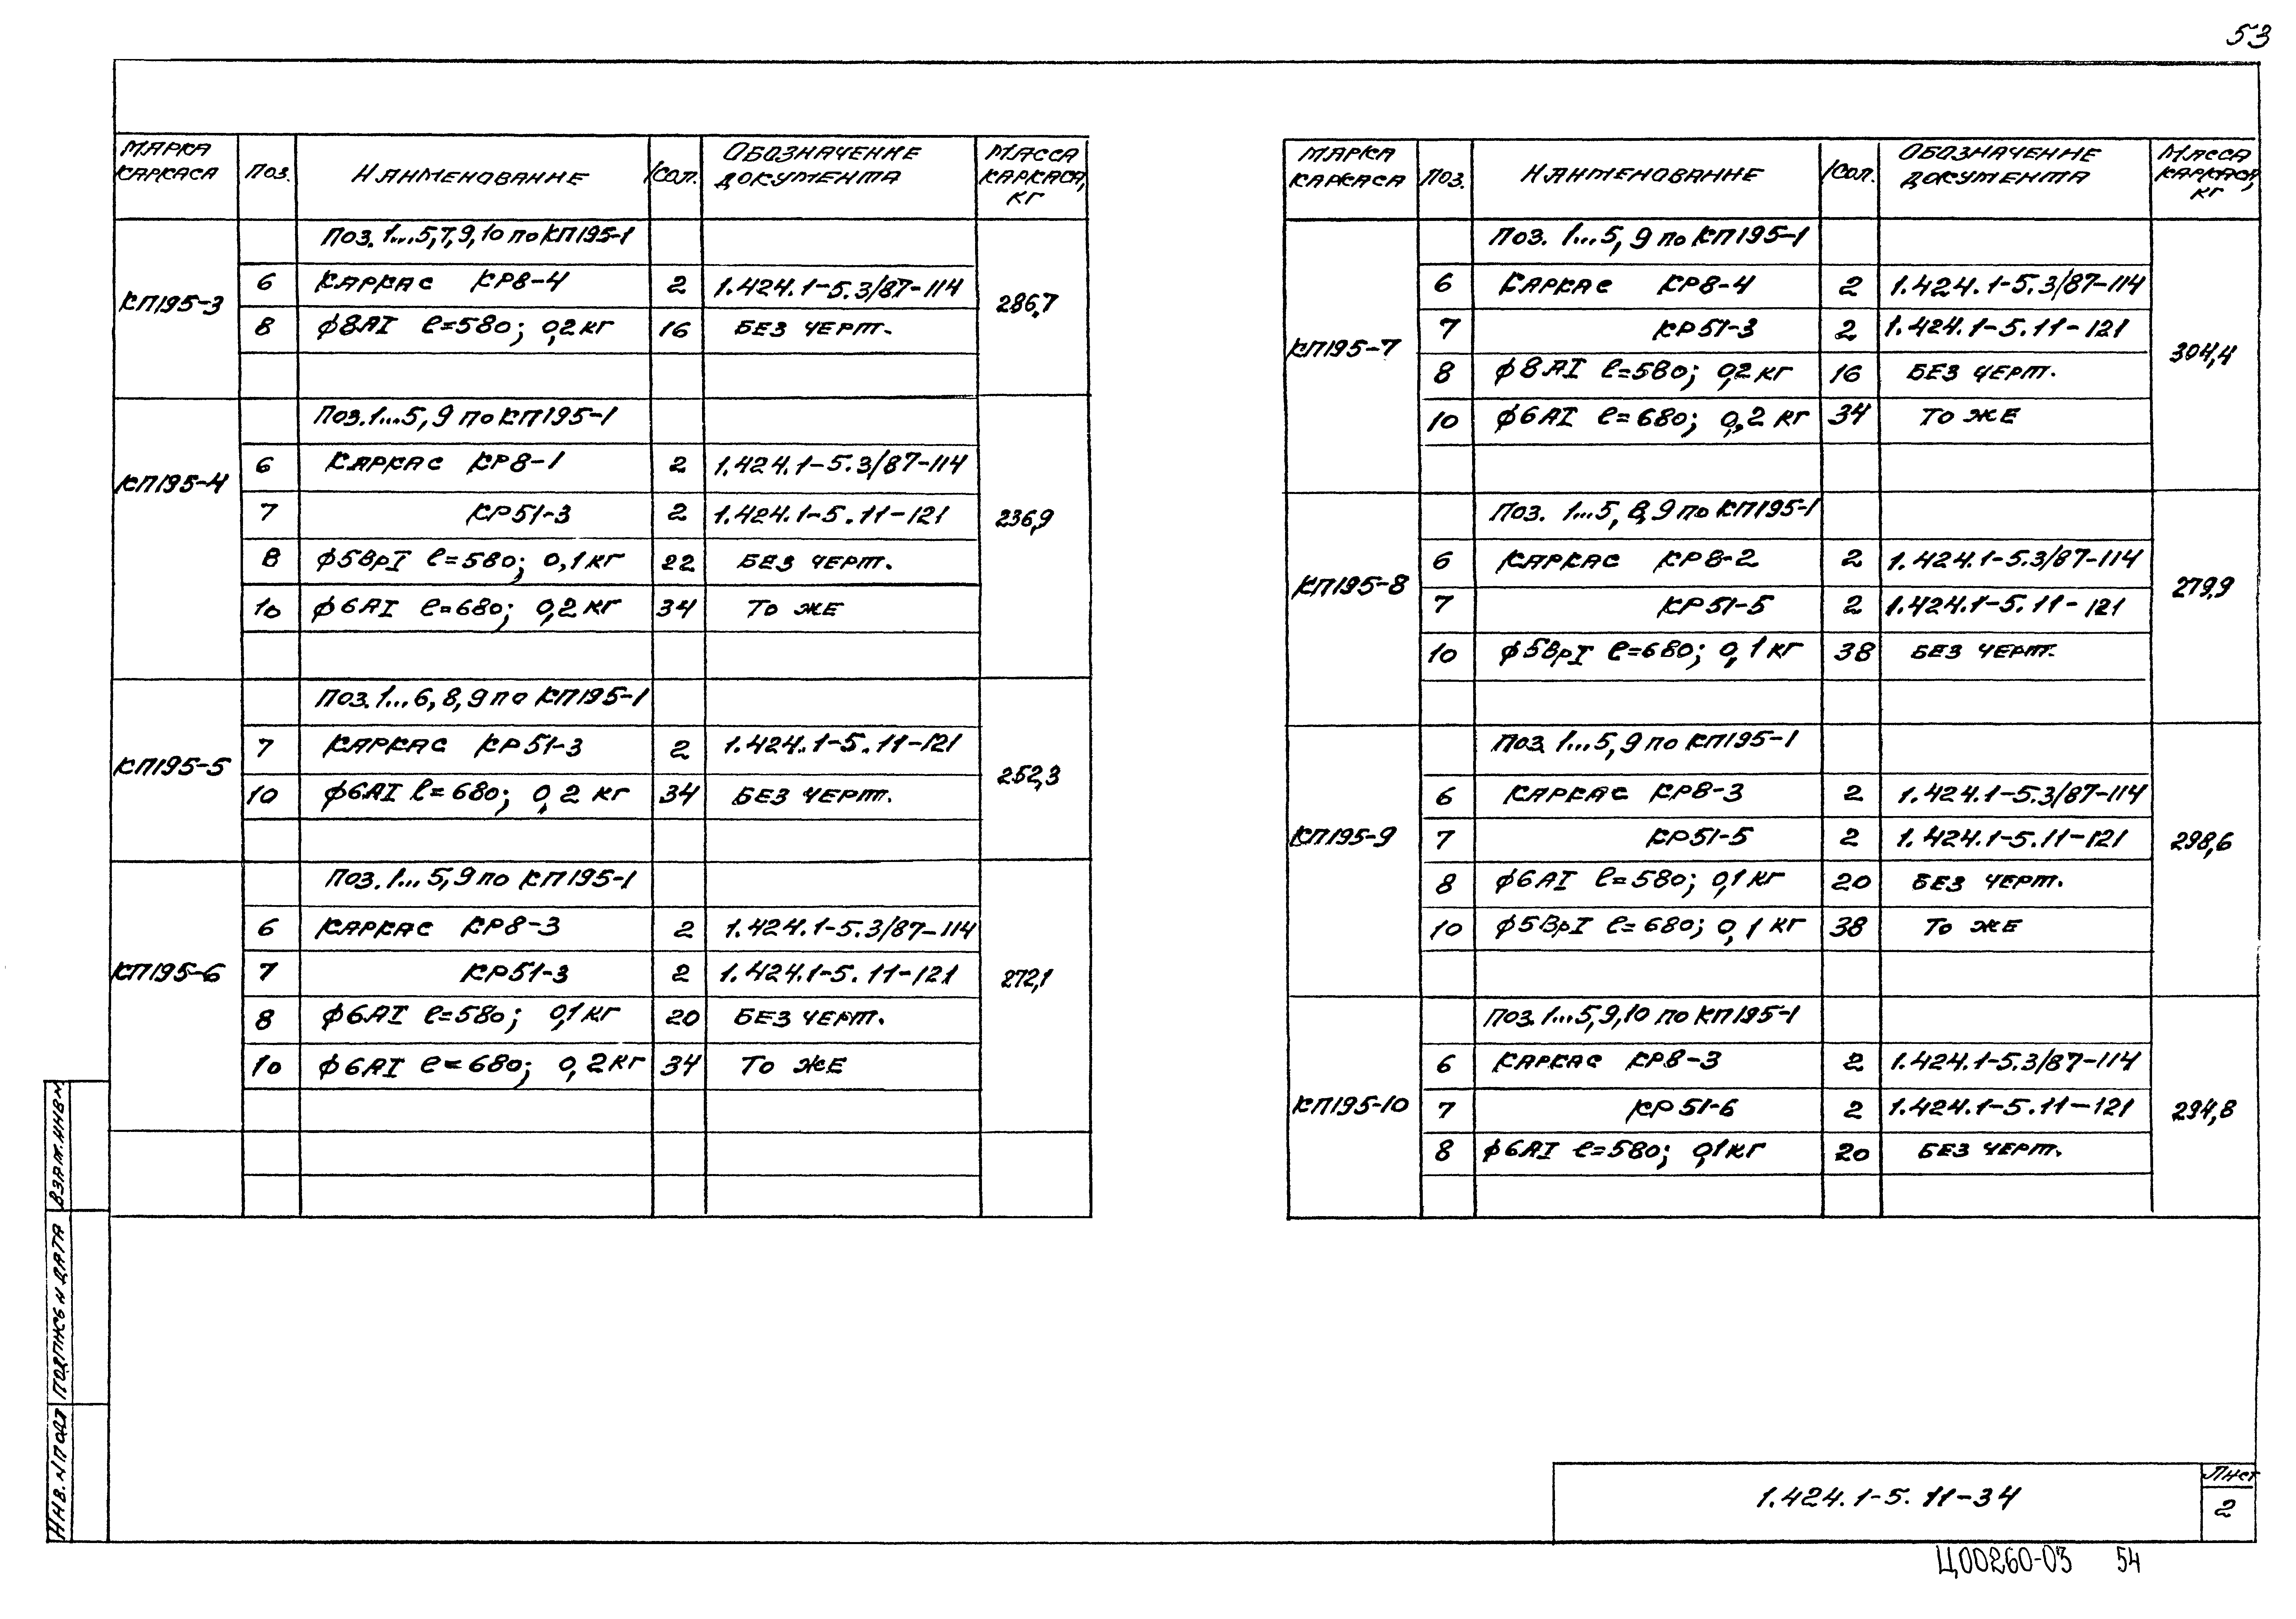 53
МАРКА КАРКАСА ПОЗ. НАИМЕНОВАНИЕ КОЛ. ОБОЗНАЧЕНИЕ ДОКУМЕНТА МАССА КАРКАСА, КГ
КП195-3 286,7
ПОЗ. 1...5,7,9,10 по КП195-1
6 КАРКАС КР8-4 2 1.424.1-5.3/87-114
8 ϕ8АI ℓ=580; 0,2 кг 16 БЕЗ ЧЕРТ.
КП195-4 236,9
ПОЗ. 1...5,9 по КП195-1
6 КАРКАС КР8-1 2 1.424.1-5.3/87-114
7 КР51-3 2 1.424.1-5.11-121
8 ϕ5ВрI ℓ=580; 0,1 кг 22 БЕЗ ЧЕРТ.
10 ϕ6АI ℓ=680; 0,2 кг 34 ТО ЖЕ
КП195-5 252,3
ПОЗ. 1...6,8,9 по КП195-1
7 КАРКАС КР51-3 2 1.424.1-5.11-121
10 ϕ6АI ℓ=680; 0,2 кг 34 БЕЗ ЧЕРТ.
КП195-6 272,1
ПОЗ. 1...5,9 по КП195-1
6 КАРКАС КР8-3 2 1.424.1-5.3/87-114
7 КР51-3 2 1.424.1-5.11-121
8 ϕ6АI ℓ=580; 0,1 кг 20 БЕЗ ЧЕРТ.
10 ϕ6АI ℓ=680; 0,2 кг 34 ТО ЖЕ
МАРКА КАРКАСА ПОЗ. НАИМЕНОВАНИЕ КОЛ. ОБОЗНАЧЕНИЕ ДОКУМЕНТА МАССА КАРКАСА, КГ
КП195-7 304,4
ПОЗ. 1...5,9 по КП195-1
6 КАРКАС КР8-4 2 1.424.1-5.3/87-114
7 КР51-3 2 1.424.1-5.11-121
8 ϕ8АI ℓ=580; 0,2 кг 16 БЕЗ ЧЕРТ.
10 ϕ6АI ℓ=680; 0,2 кг 34 ТО ЖЕ
КП195-8 279,9
ПОЗ. 1...5,8,9 по КП195-1
6 КАРКАС КР8-2 2 1.424.1-5.3/87-114
7 КР51-5 2 1.424.1-5.11-121
10 ϕ5ВрI ℓ=680; 0,1 кг 38 БЕЗ ЧЕРТ.
КП195-9 298,6
ПОЗ. 1...5,9 по КП195-1
6 КАРКАС КР8-3 2 1.424.1-5.3/87-114
7 КР51-5 2 1.424.1-5.11-121
8 ϕ6АI ℓ=580; 0,1 кг 20 БЕЗ ЧЕРТ.
10 ϕ5ВрI ℓ=680; 0,1 кг 38 ТО ЖЕ
КП195-10 294,8
ПОЗ. 1...5,9,10 по КП195-1
6 КАРКАС КР8-3 2 1.424.1-5.3/87-114
7 КР51-6 2 1.424.1-5.11-121
8 ϕ6АI ℓ=580; 0,1 кг 20 БЕЗ ЧЕРТ.
ВЗАМ.ИНВ№
ПОДПИСЬ И ДАТА
ИНВ.№ПОДЛ
1.424.1-5.11-34
Лист
2
Ц00260-03 54